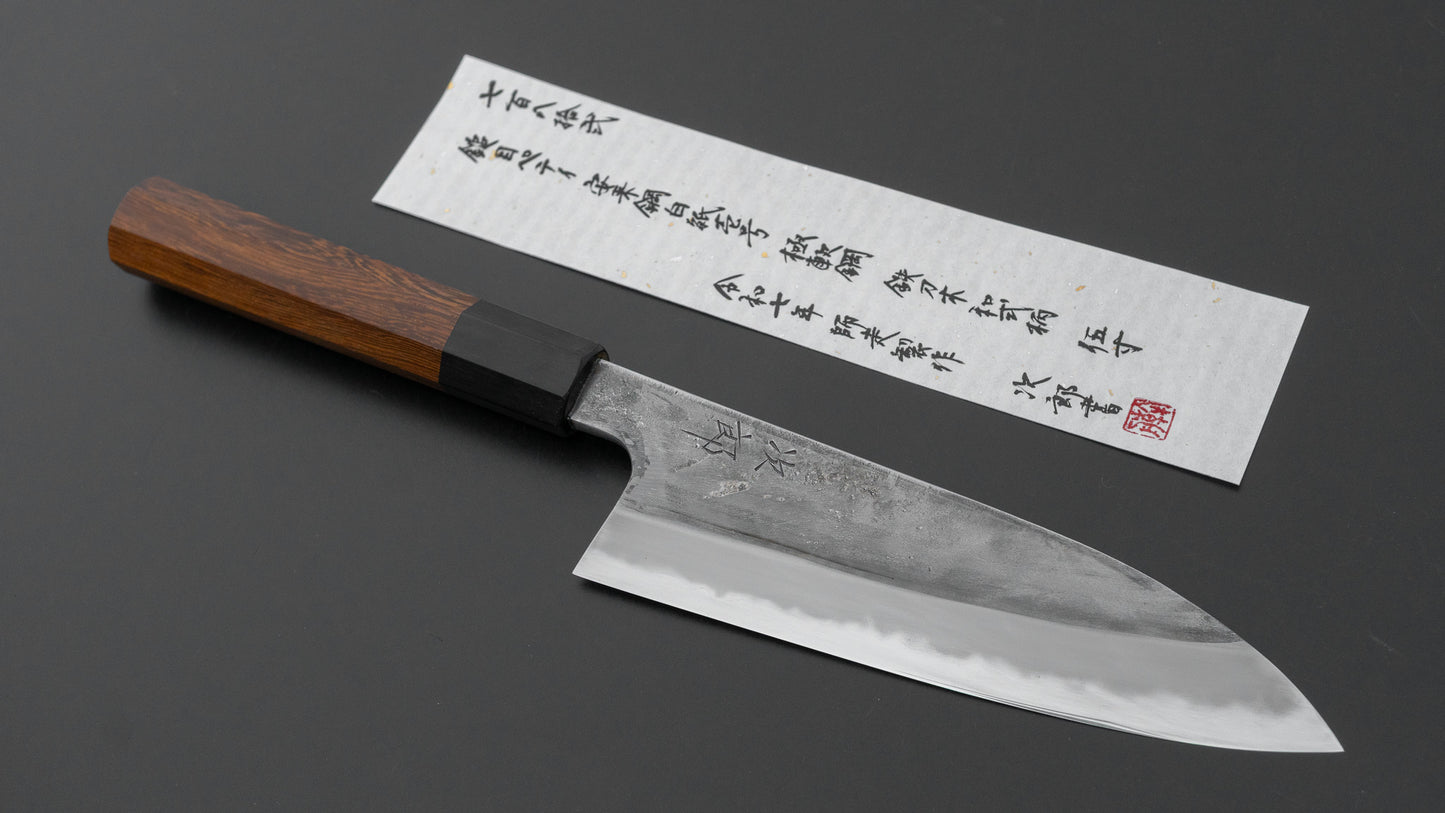 七百八拾弐
鎚目ペティ 安来鋼白紙壱号 極軟鋼 鉄刀木 和式柄 伍寸
令和七年 師走製作
次郎書
次郎